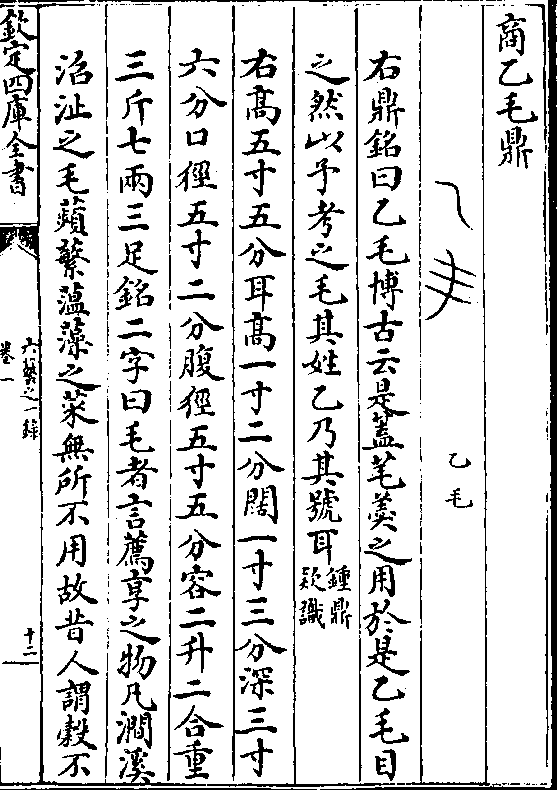 商乙毛鼎
乙毛
右鼎銘曰乙毛博古云是蓋芼羹之用於是乙毛目
之然以予考之毛其姓乙乃其號耳鍾鼎款識
右高五寸五分耳高一寸二分闊一寸三分深三寸
六分口徑五寸二分腹徑五寸五分容二升二合重
三斤七兩三足銘二字曰毛者言薦享之物凡澗溪
沼沚之毛蘋蘩薀藻之菜無所不用故昔人謂殽不
欽定四庫全書
六藝之一錄
卷一
十二